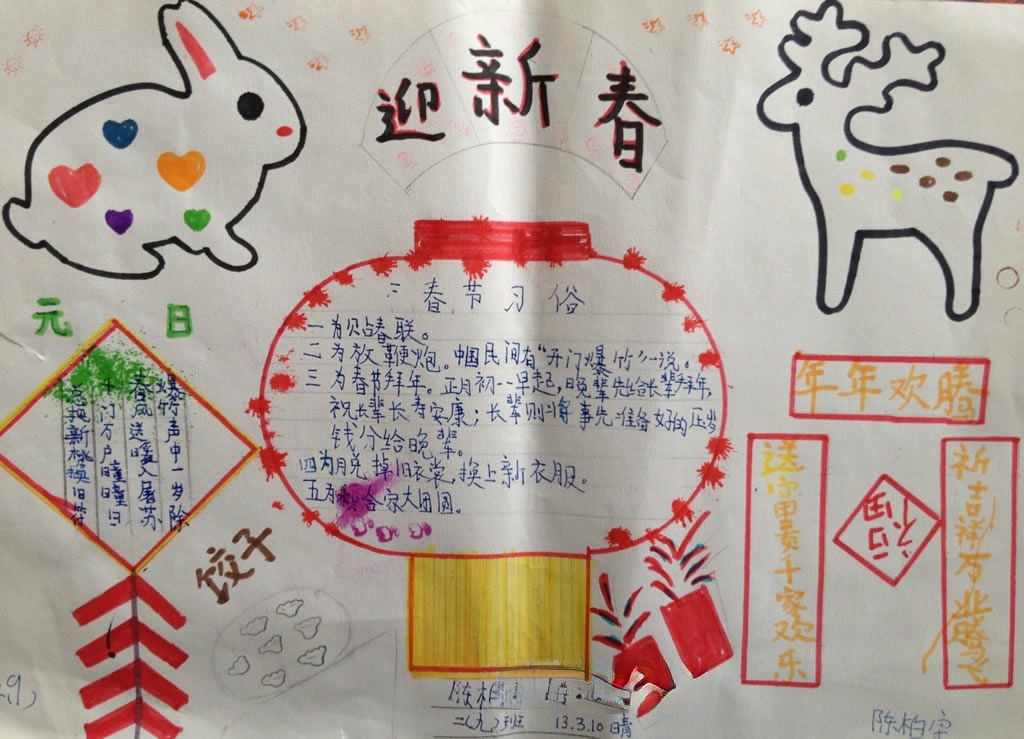 迎新春
元日
爆竹声中一岁除
春风送暖入屠苏
千门万户曈曈日
总把新桃换旧符
春节习俗
一为贴春联。
二为放鞭炮。中国民间有“开门爆竹”一说。
三为春节拜年。正月初一早起,晚辈先给长辈拜年,
祝长辈长寿安康;长辈则将事先准备好的压岁
钱分给晚辈。
四为脱掉旧衣裳,换上新衣服。
五为合家大团圆。
年年欢腾
送富贵千家欢乐
福
祈吉祥万业腾飞
饺子
陈柏
二(九)班 13.3.10 晴
陈柏宇